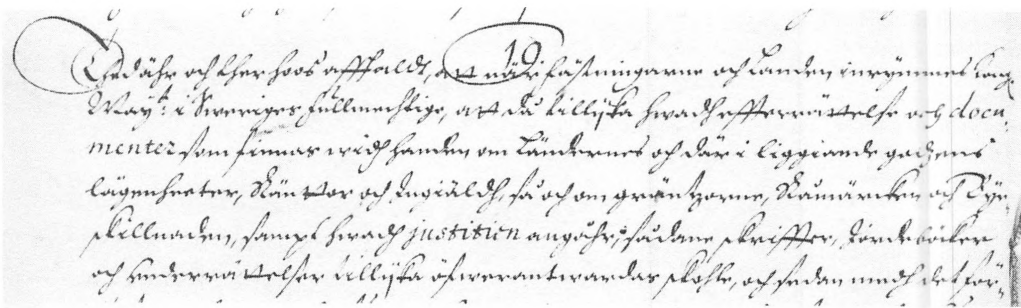 10
Thet ähr och ther hoos affhaldt, att när fästningarne och Landen inrymmes Kongl
May:tz i Sweriges fullmechtige, att då tillijka hwadh effterrättelse och docu-
menter som finnas widh handen om Ländernes och där i liggiande godzens
lägenheeter, Räntor och Ingiäldh, så och om gräntzorne, Råmärcken och Byu-
skillnaden, sampt hwadh justitien angåhr, sådane skriffter, Jordeböcker
och underrättelser tillijka öfwerantwardas skohle, och sedan medh det för-